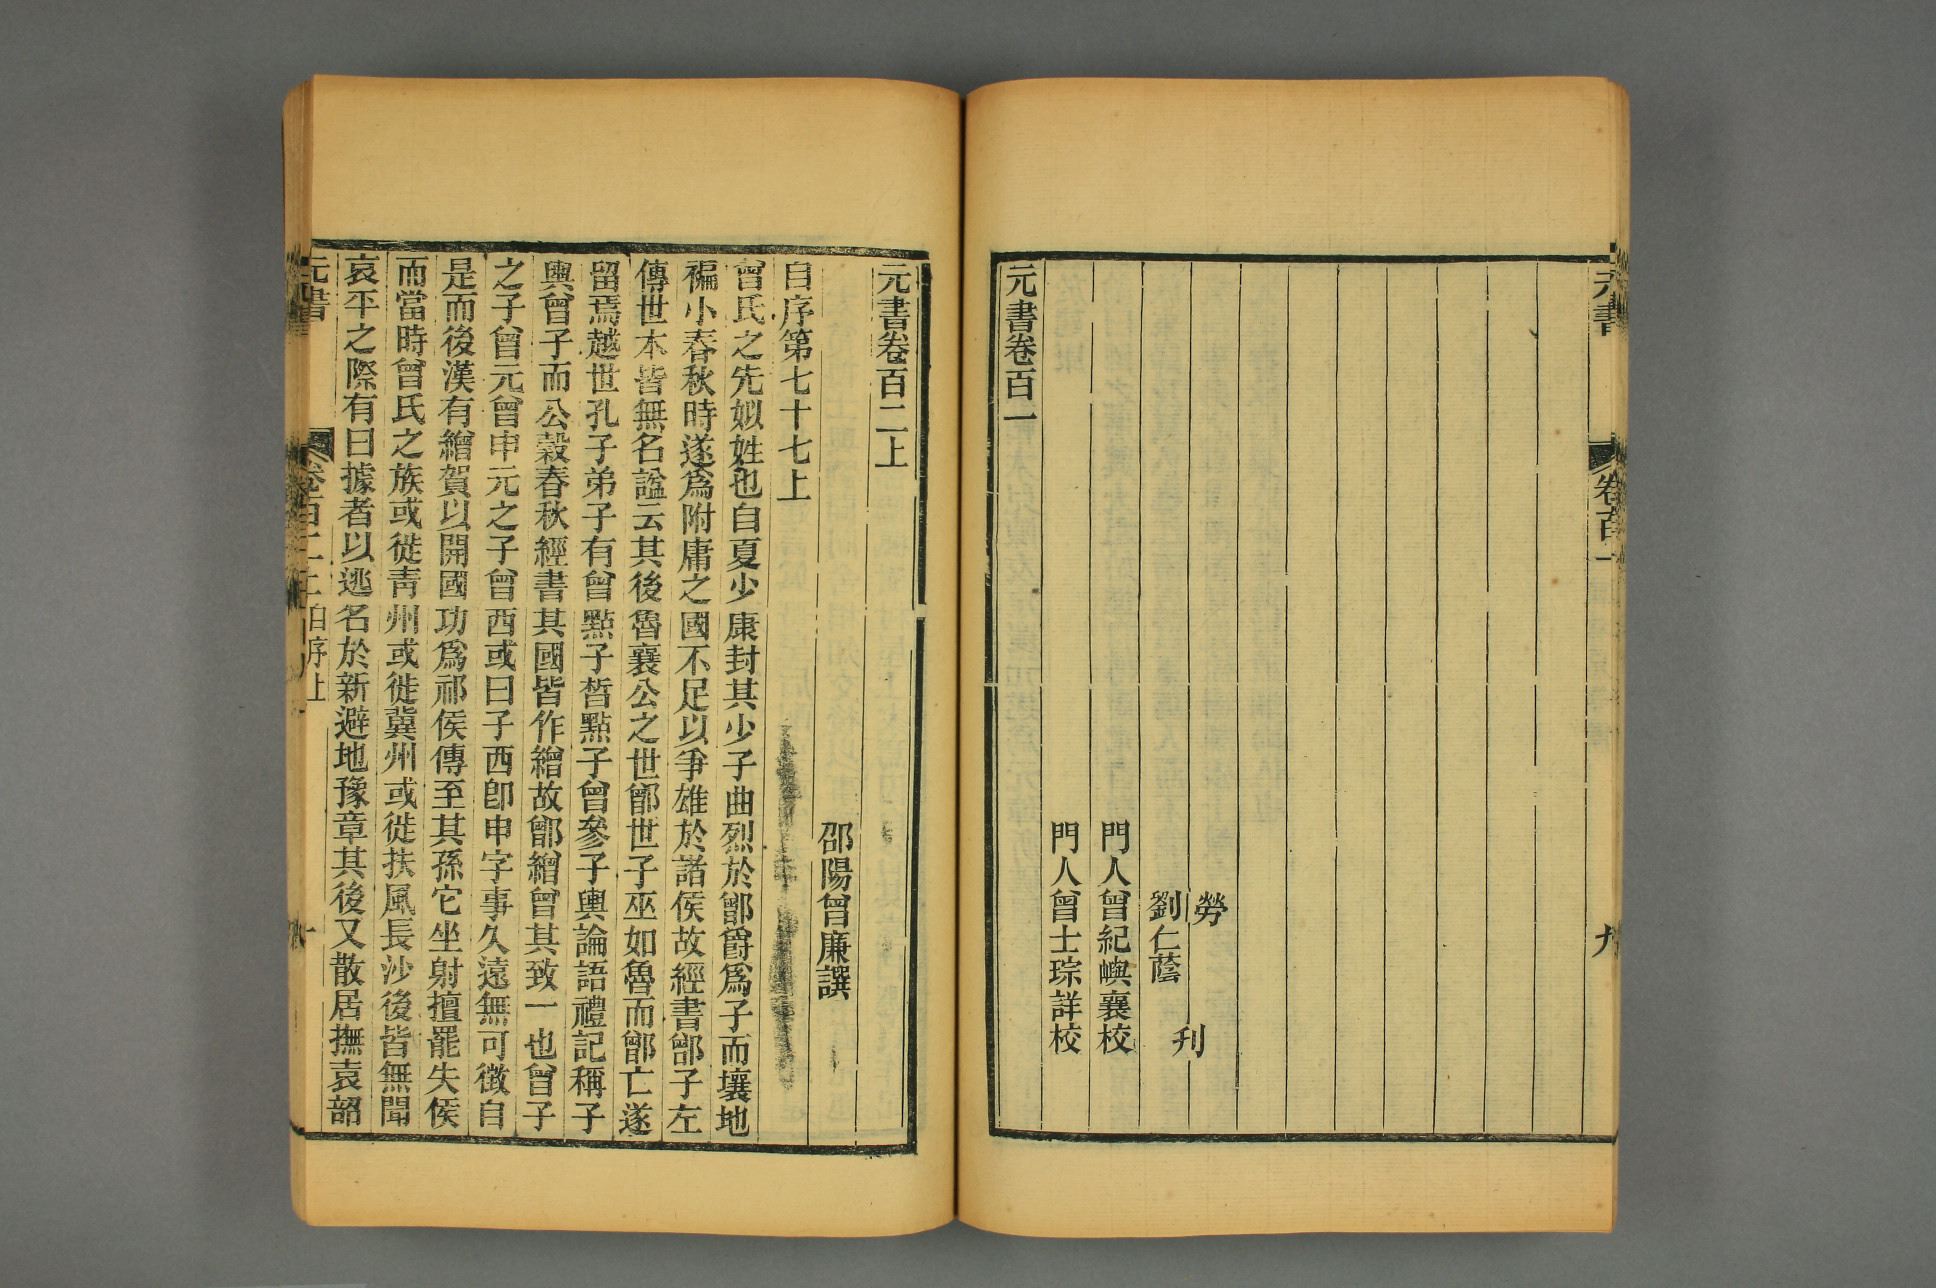 元書
卷百一
九
勞
劉仁蔭
刊
門人曾紀嶼襄校
門人曾士琮詳校
元書卷百一
元書卷百二上
邵陽曾廉譔
自序第七十七上
曾氏之先姒姓也自夏少康封其少子曲烈於鄫爵爲子而壤地
褊小春秋時遂爲附庸之國不足以爭雄於諸侯故經書鄫子左
傳世本皆無名諡云其後魯襄公之世鄫世子巫如魯而鄫亡遂
留焉越世孔子弟子有曾點子晳點子曾參子輿論語禮記稱子
輿曾子而公穀春秋經書其國皆作繒故鄫繒曾其致一也曾子
之子曾元曾申元之子曾西或曰子西卽申字事久遠無可徵自
是而後漢有繒賀以開國功爲祁侯傳至其孫它坐射擅罷失侯
而當時曾氏之族或徙靑州或徙冀州或徙扶風長沙後皆無聞
哀平之際有曰據者以逃名於新避地豫章其後又散居撫袁韶
元書
卷百二上
自序上
一